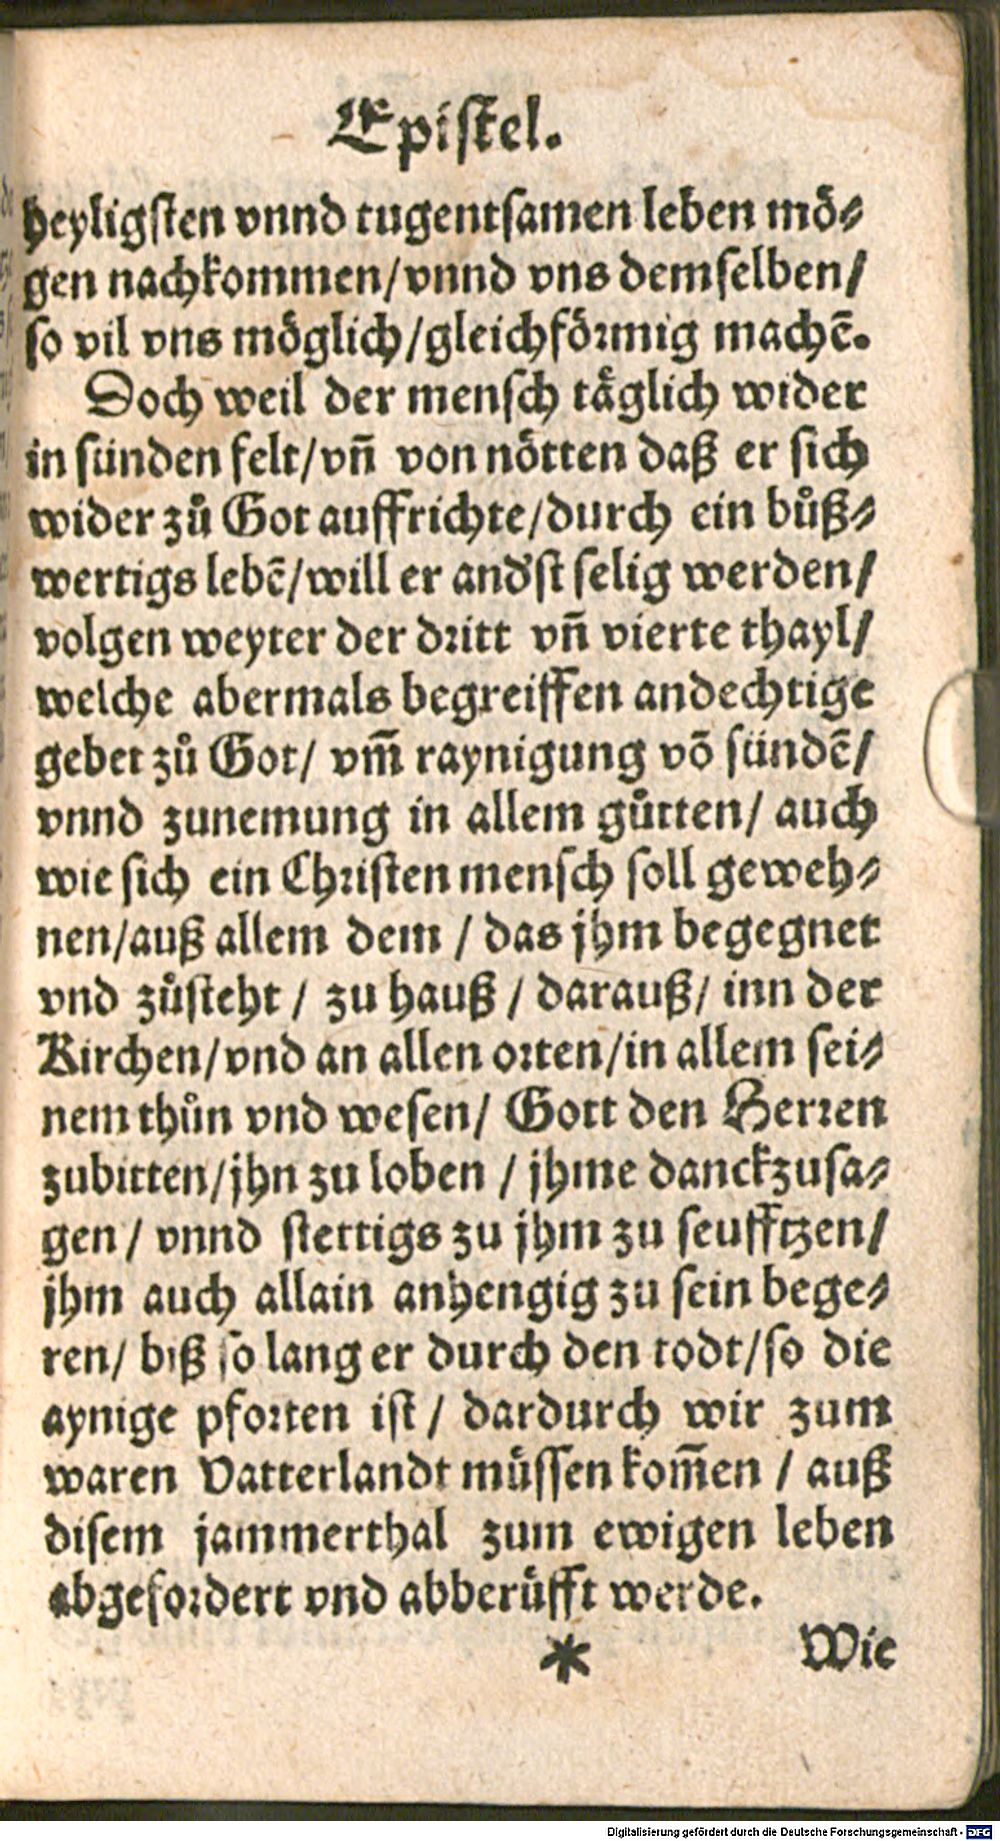 Epistel.
heyligsten vnnd tugentsamen leben mö⸗
gen nachkommen/vnnd vns demselben/
so vil vns möglich/gleichförmig machē.
Doch weil der mensch täglich wider
in sünden felt/vñ von nötten daß er sich
wider zů Got auffrichte/durch ein bůß⸗
wertigs lebē/will er and'st selig werden/
volgen weyter der dritt vñ vierte thayl/
welche abermals begreiffen andechtige
gebet zů Got/ vm̄ raynigung võ sündē/
vnnd zunemung in allem gůtten/ auch
wie sich ein Christen mensch soll geweh⸗
nen/auß allem dem / das jhm begegnet
vnd zůsteht / zu hauß / darauß/ inn der
Kirchen/vnd an allen orten/in allem sei⸗
nem thůn vnd wesen/ Gott den Herren
zubitten/jhn zu loben / jhme danckzusa⸗
gen / vnnd stettigs zu jhm zu seufftzen/
jhm auch allain anhengig zu sein bege⸗
ren/ biß so lang er durch den todt/so die
aynige pforten ist / dardurch wir zum
waren Vatterlandt müssen kom̄en / auß
disem jammerthal zum ewigen leben
abgefordert vnd abberüfft werde.
* Wie
Digitalisierung gefördert durch die Deutsche Forschungsgemeinschaft - DFG